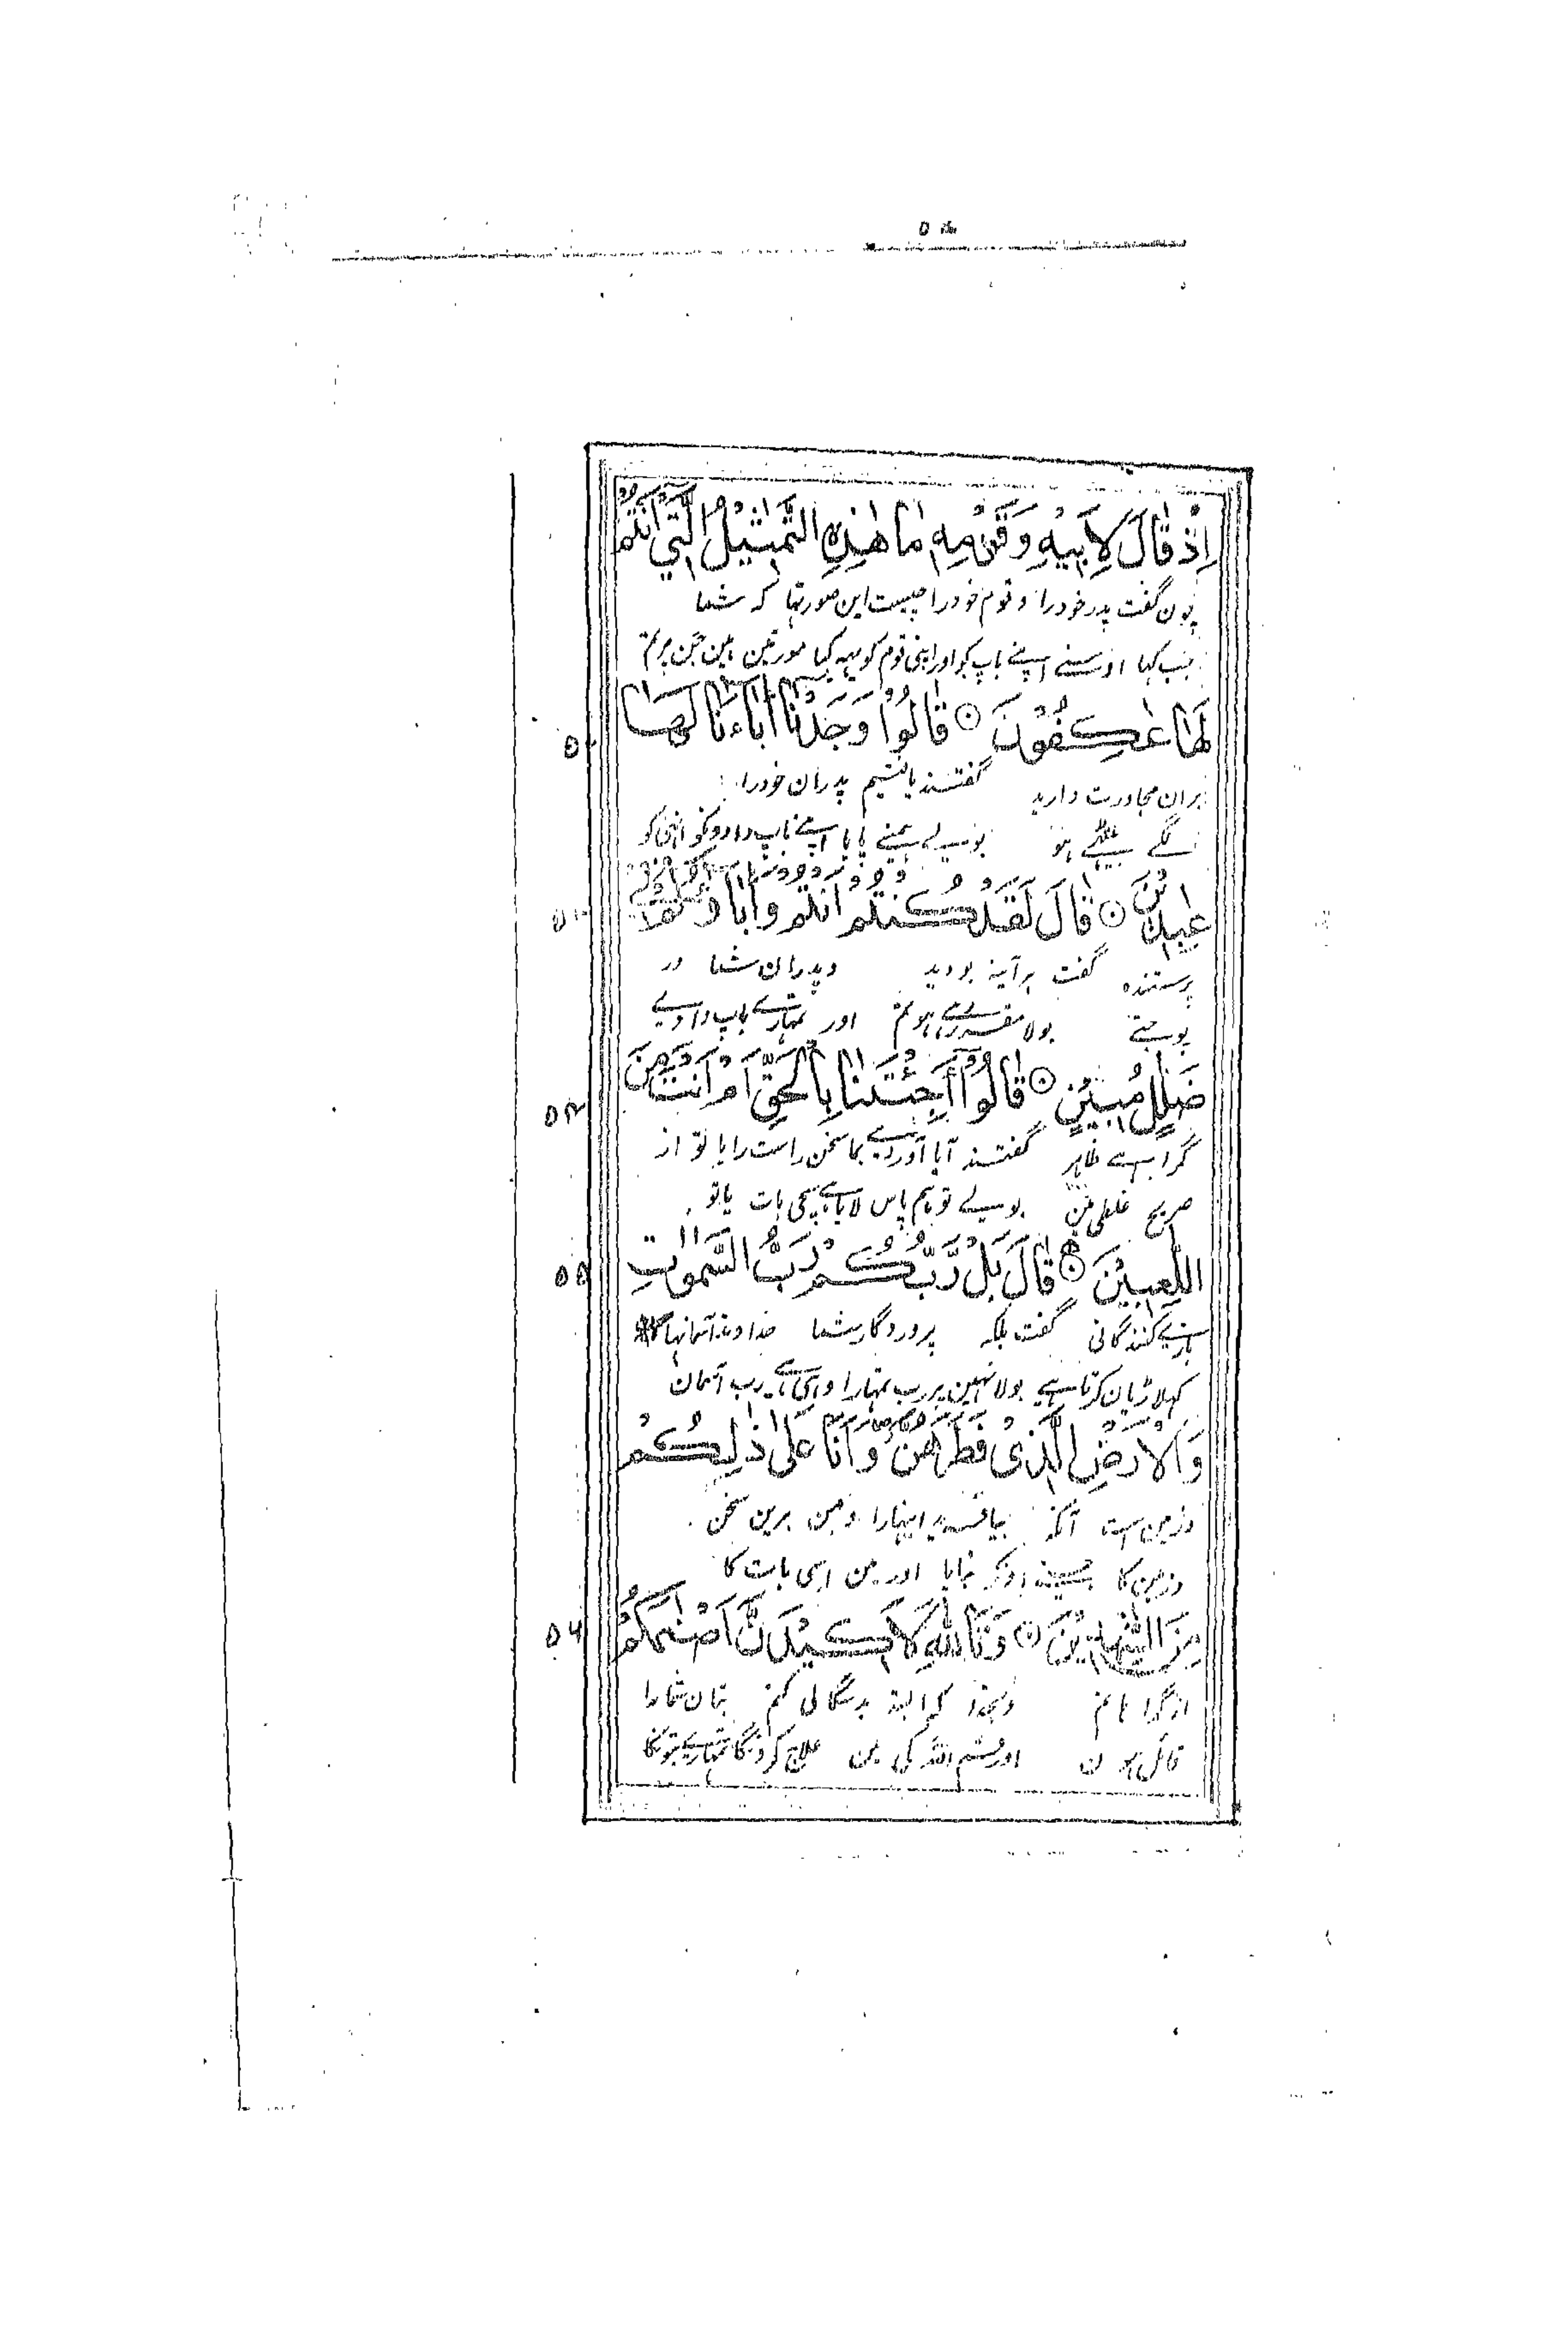 اِذْ قَالَ لِاَبِيْهِ وَقَوْمِهٖ مَا هٰذِهِ التَّمٰثِيْلُ الَّتِيْ اَنْتُمْ
چون گفت پدر خود را و قوم خود را چیست این صورتها که شما
جب کہا اوسنے اپنے باپ کو اور اپنی قوم کو یہہ کیا مورتین ہین جن پر تم
لَهَا عٰكِفُوْنَ ۞ قَالُوْا وَجَدْنَا اٰبَاءَنَا لَهَا
بران مجاورت دارید گفتند یافتیم پدران خودرا
لگے بیٹھے ہو بولے ہمنے پایا اپنے باپ دادونکو انہی کو
عٰبِدِيْنَ ۞ قَالَ لَقَدْ كُنْتُمْ اَنْتُمْ وَاٰبَاؤُكُمْ فِيْ
پرستنده گفت ہر آینه بودید و پدران شما در
پوجتے بولا مقرر رہے ہو تم اور تمہارے باپ دادے
ضَلٰلٍ مُّبِيْنٍ ۞ قَالُوْا اَجِئْتَنَا بِالْحَقِّ اَمْ اَنْتَ مِنَ
گمراہے ظاہر گفتند آیا آوردے بما سخن راست را یا تو از
صریح غلطی مین بولے تو ہم پاس لایا ہے سچی بات یا تو
اللّٰعِبِيْنَ ۞ قَالَ بَلْ رَّبُّكُمْ رَبُّ السَّمٰوٰتِ
بازے کنندگانی گفت بلکه پروردگار شما خداوند آسمانها
کہلاڑیان کرتا ہے بولا نہین پر رب تمہارا وہی ہے رب آسمان
وَالْاَرْضِ الَّذِيْ فَطَرَهُنَّ وَاَنَا عَلٰى ذٰلِكُمْ
و زمین است آنکه بیافرید اینہارا و من برین سخن
و زمین کا جسنے اونکو بنایا اور مین اسی بات کا
مِّنَ الشّٰهِدِيْنَ ۞ وَتَاللّٰهِ لَاَكِيْدَنَّ اَصْنَامَكُمْ
از گواہانم و بخدا که البته بدسگالی کنم بتان شمارا
قائل ہون اور قسم اللہ کی مین علاج کرونگا تمہارے بتونکا